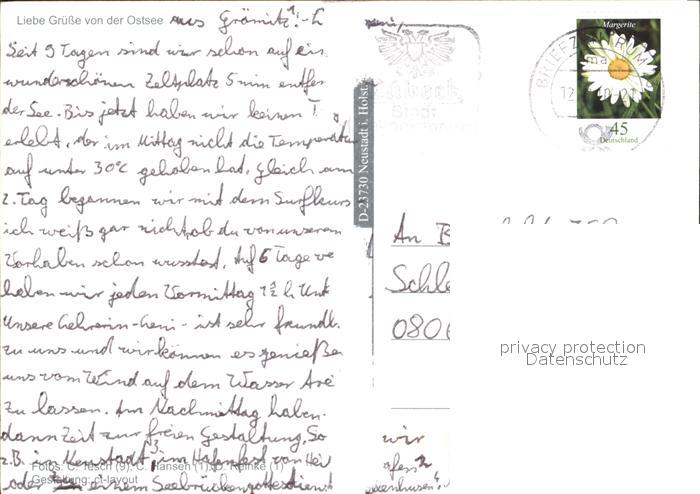 Liebe Grüße von der Ostsee aus Grömitz!
Seit 9 Tagen sind wir schon auf ein
wunderschönen Zeltplatz 5 min entfer
der See. Bis jetzt haben wir keinen T
erlebt, der im Mittag nicht die Temperatur
auf unter 30°C gehoben hat. Gleich am
2. Tag begannen wir mit dem Surfkurs
ich weiß gar nicht, ob du von unserem
Vorhaben schon wusstest. Auf 6 Tage ve
haben wir jeden Vormittag h. Unt
Unsere Lehrerin - - ist sehr freundl.
zu uns und wir können es genieße
uns vom Wind auf dem Wasser
zu lassen. Am Nachmittag haben
dann Zeit zur freien Gestaltung. So
z.B. im Neustadt, im Hafenfest von Hei
oder einem Seebrückengottesdienst
Fotos: C. Tesch (9), C. Hansen (1), D. Reinke (1)
Gestaltung: ct-layout
D-23730 Neustadt i. Holst.
Lübeck
Stadt
BRIEFZENTRUM
Margerite
45
Deutschland
An B
Schle
080
wir
privacy protection
Datenschutz